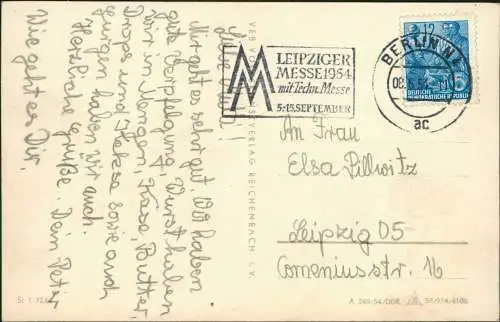 Liebe Mutti!
Mir geht es sehr gut. Wir haben
gute Verpflegung, Wurst haben
wir in Mengen, Käse, Butter,
Drops und Kekse sowie auch
Jungen haben wir auch.
Herzliche Grüße. Dein Peter
Wie geht es Dir.
LEIPZIGER
MESSE 1954
mit Techn. Messe
5.-15. SEPTEMBER
BERLIN N 4
12
ac
DEUTSCHE
DEMOKRATISCHE REPUBLIK
An Frau
Elsa Pillwitz
Leipzig O5
Comeniusstr. 16
REICHENBACH i. V.
A 265/54/DDR